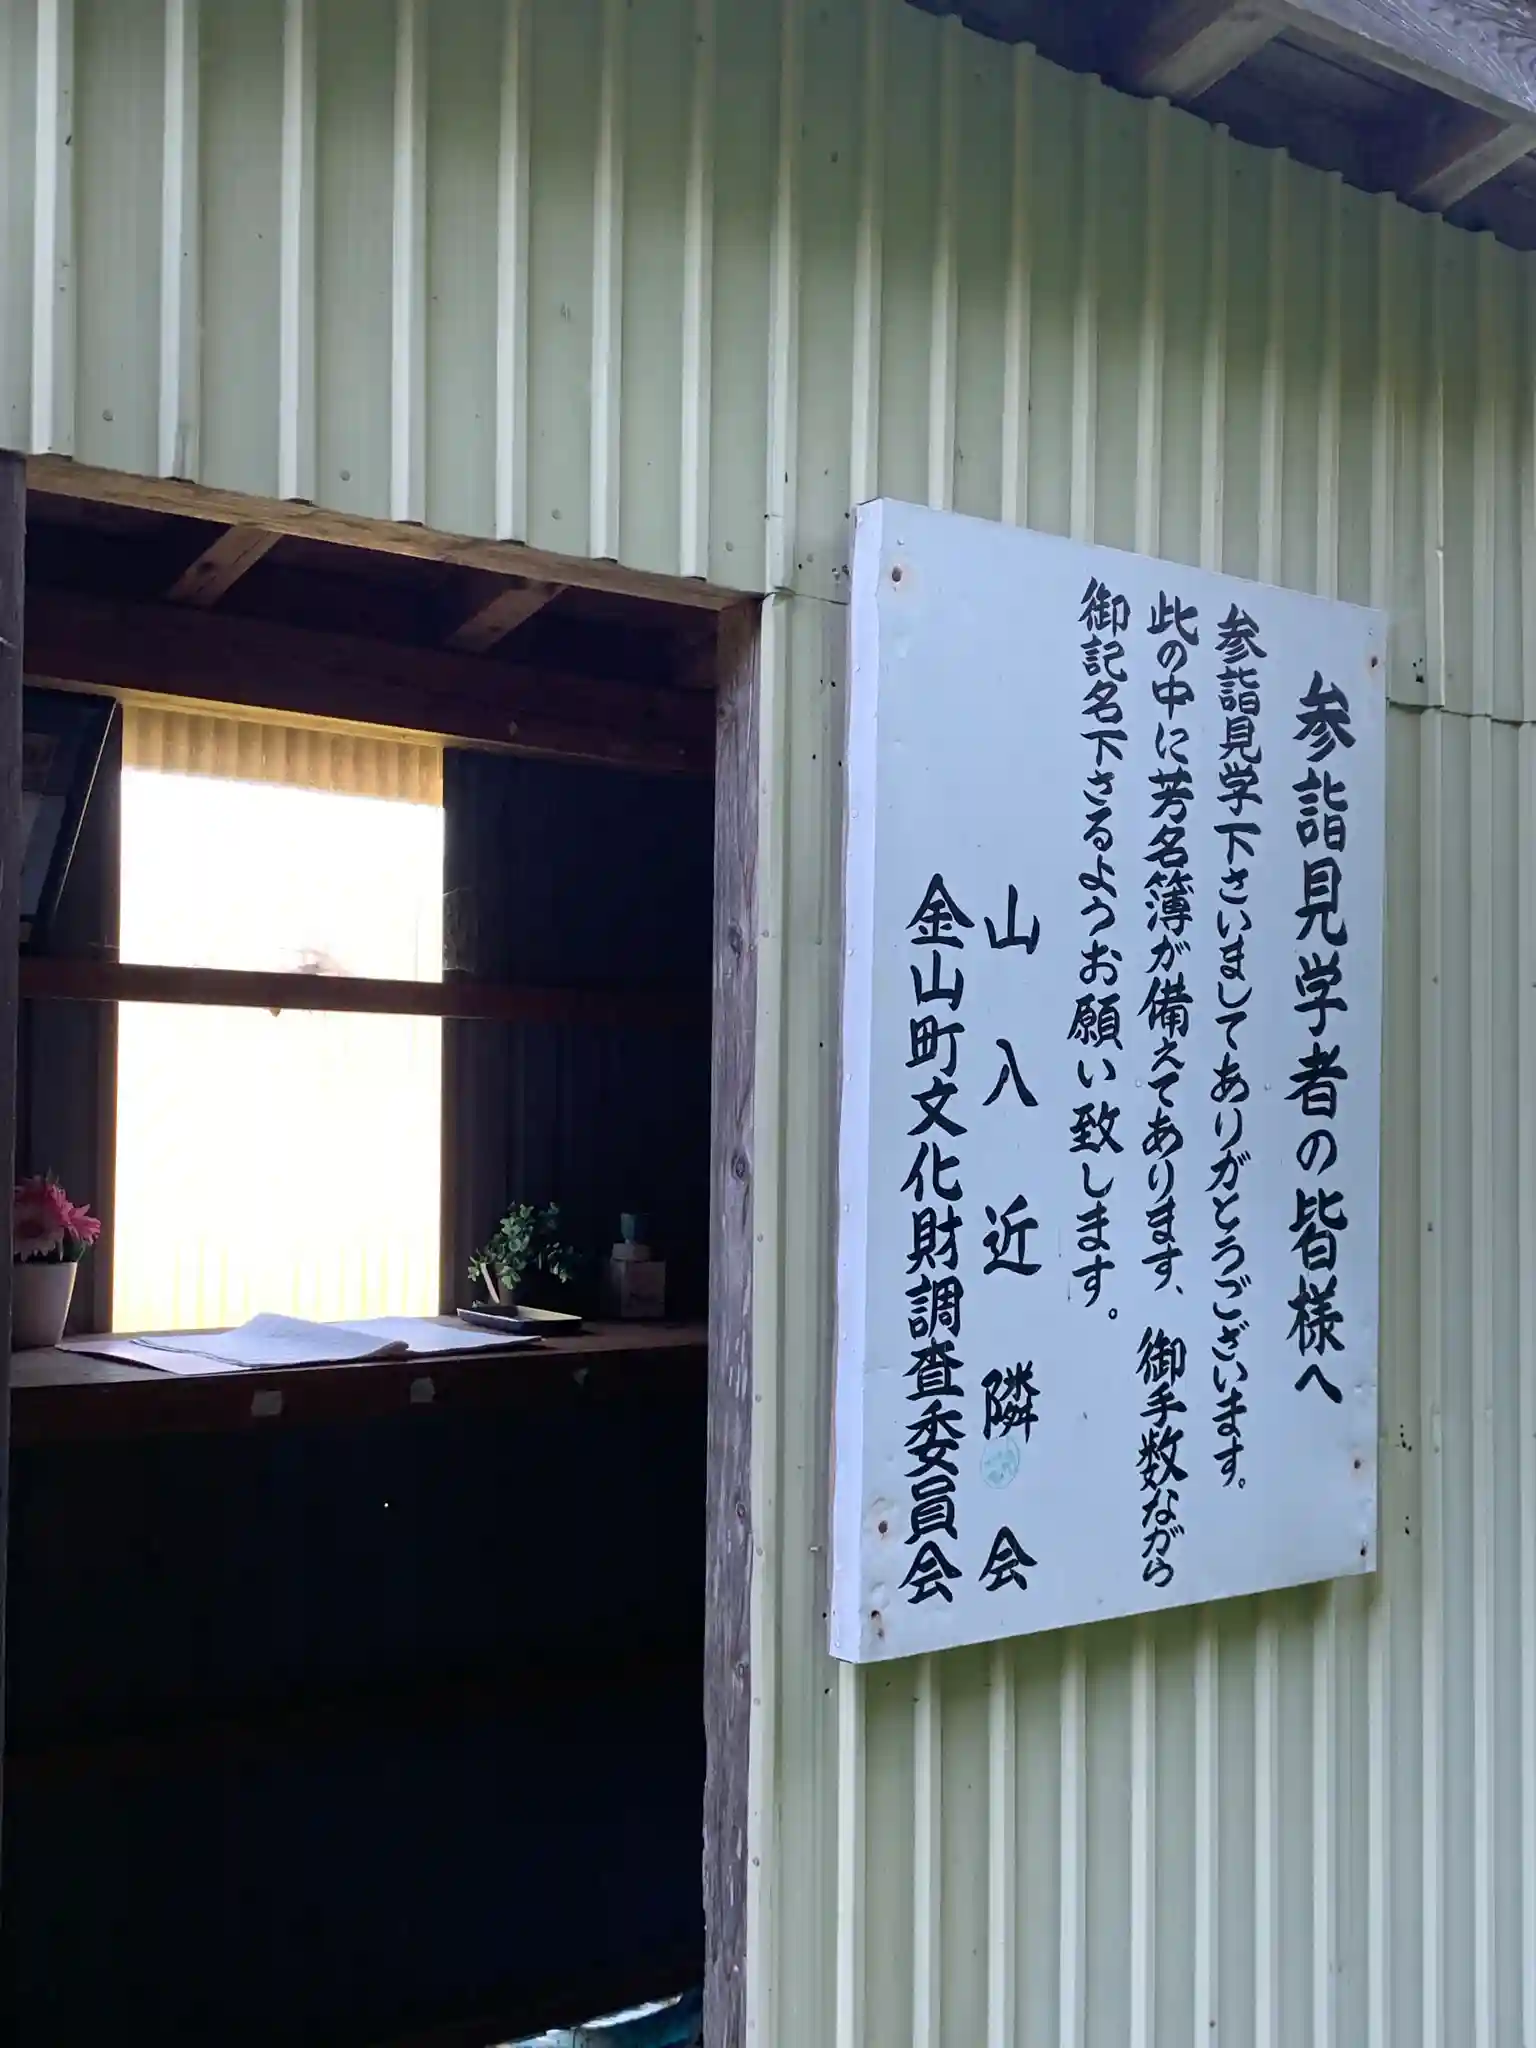 参詣見学者の皆様へ
参詣見学下さいましてありがとうございます。
此の中に芳名簿が備えてあります、御手数ながら
御記名下さるようお願い致します。
山入近隣会
金山町文化財調査委員会